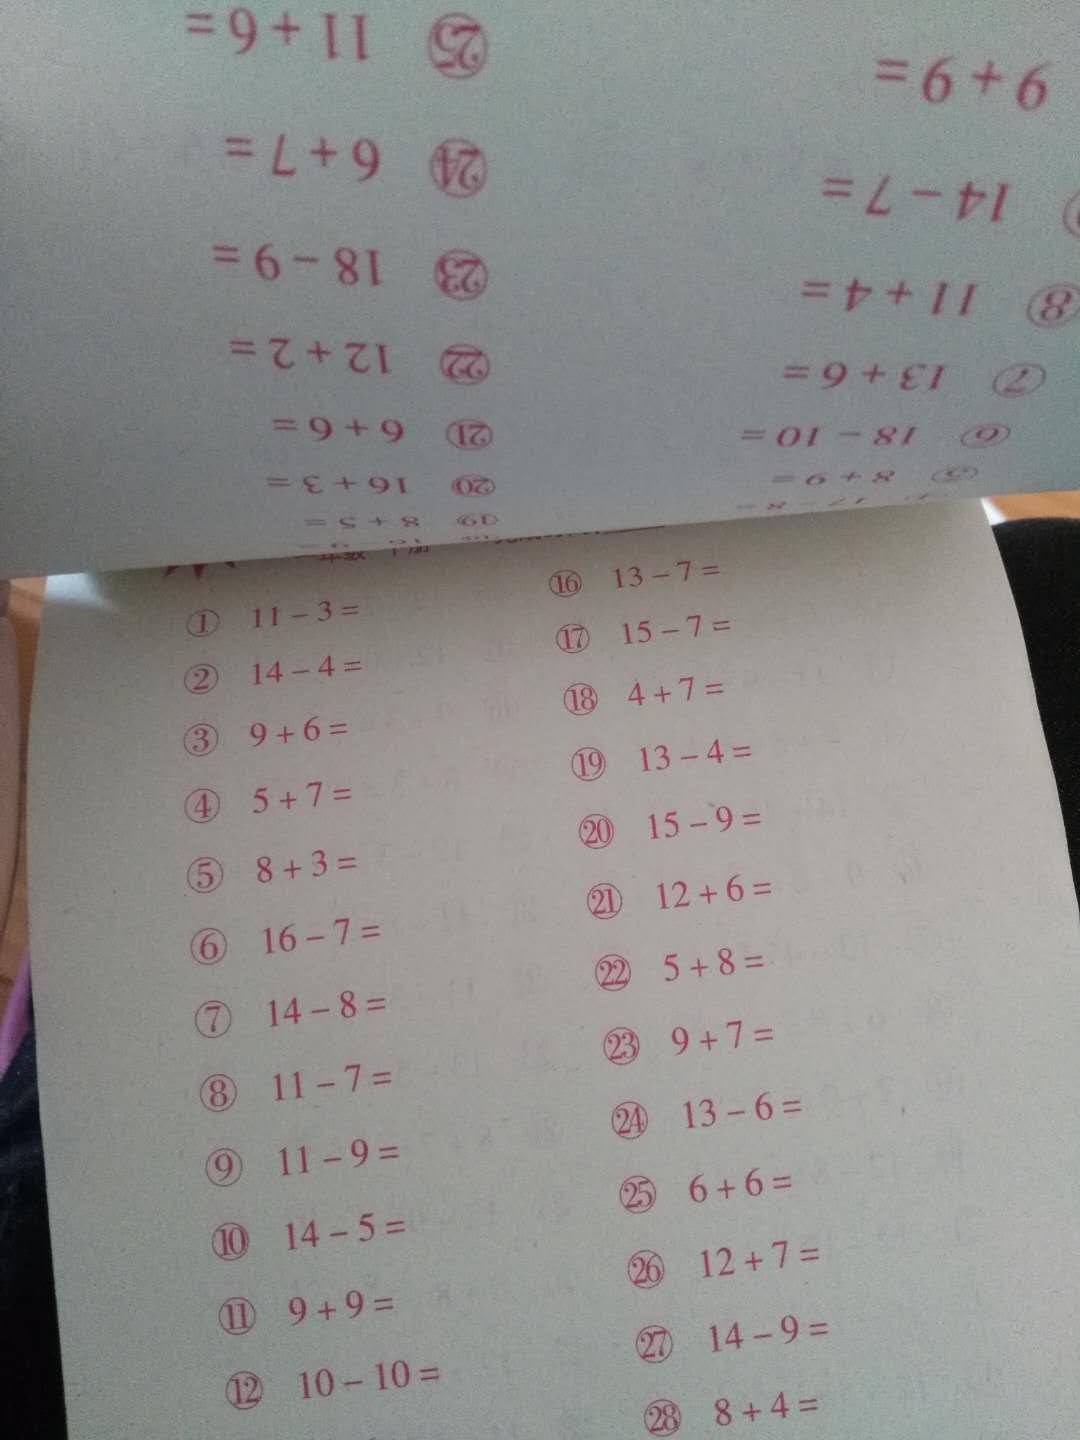 ① 11 – 3 =
② 14 – 4 =
③ 9 + 6 =
④ 5 + 7 =
⑤ 8 + 3 =
⑥ 16 – 7 =
⑦ 14 – 8 =
⑧ 11 – 7 =
⑨ 11 – 9 =
⑩ 14 – 5 =
⑪ 9 + 9 =
⑫ 10 – 10 =
⑯ 13 – 7 =
⑰ 15 – 7 =
⑱ 4 + 7 =
⑲ 13 – 4 =
⑳ 15 – 9 =
㉑ 12 + 6 =
㉒ 5 + 8 =
㉓ 9 + 7 =
㉔ 13 – 6 =
㉕ 6 + 6 =
㉖ 12 + 7 =
㉗ 14 – 9 =
㉘ 8 + 4 =
⑤ 8 + 9 =
⑥ 18 – 10 =
⑦ 13 + 6 =
⑧ 11 + 4 =
14 – 7 =
9 + 9 =
⑲ 8 + 5 =
⑳ 16 + 3 =
㉑ 6 + 6 =
㉒ 12 + 2 =
㉓ 18 – 9 =
㉔ 6 + 7 =
㉕ 11 + 6 =